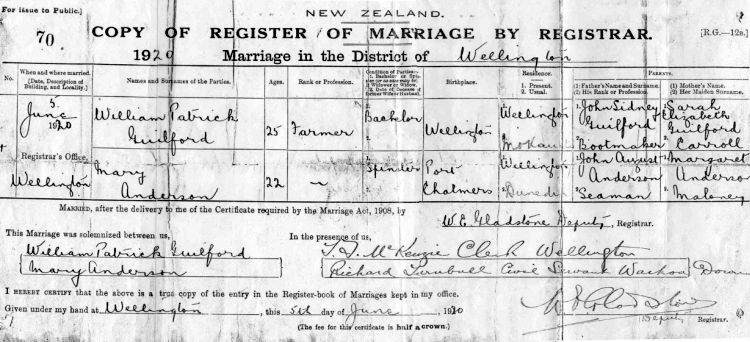 For issue to Public.]
NEW ZEALAND.
70. COPY OF REGISTER OF MARRIAGE BY REGISTRAR. [R.G.—12a.]
1920 Marriage in the District of Wellington
No.
When and where married. [Date, Description of Building, and Locality.]
Names and Surnames of the Parties.
Ages.
Rank or Profession.
Birthplace.
Residence. 1. Present. 2. Usual.
PARENTS.
(1) Father's Name and Surname. (2) His Rank or Profession.
(1) Mother's Name. (2) Her Maiden Surname.
5 June 1920
William Patrick Guilford
25
Farmer
Bachelor
Wellington
Wellington
John Sidney Guilford
Bootmaker
Sarah Elizabeth Guilford
Carroll
Registrar's Office.
Wellington
Mary Anderson
22
Spinster
Port Chalmers
Wellington
John August Anderson
Seaman
Margaret Anderson
Maloney
MARRIED, after the delivery to me of the Certificate required by the Marriage Act, 1908, by
W.E. Gladstone Deputy, Registrar.
This Marriage was solemnized between us,
In the presence of us,
William Patrick Guilford
McKenzie Clerk Wellington
Mary Anderson
Richard Turnbull Civil Servant
I HEREBY CERTIFY that the above is a true copy of the entry in the Register-book of Marriages kept in my office.
Given under my hand at Wellington, this 5th day of June, 1920
W E Gladstone
Deputy Registrar.
(The fee for this certificate is half a crown.)